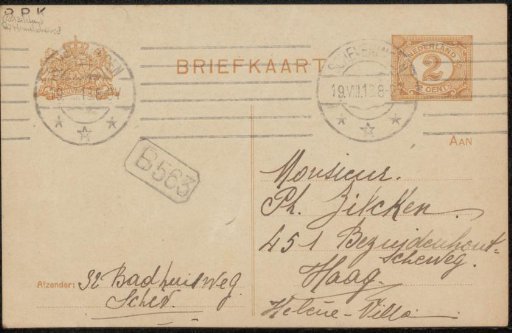 BRIEFKAART
NEDERLAND
2
CENT
19.VII.1
AAN
B563
Monsieur.
Ph. Zilcken.
451 Bezuidenhout-
scheweg.
Haag.
Helène-Villa.
Afzender: 32 Badhuisweg.
Schev.